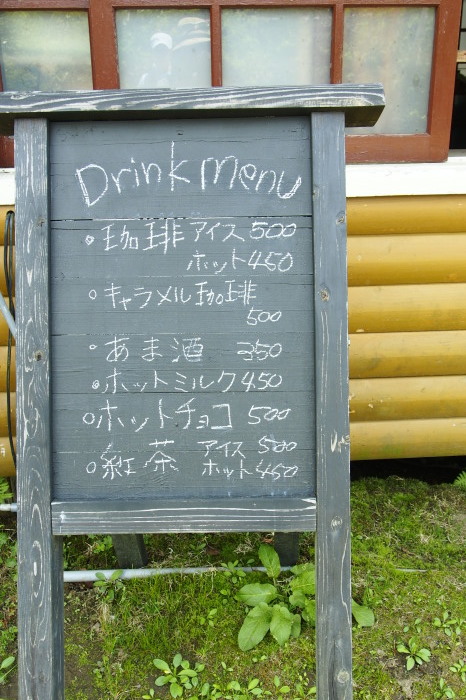 Drink Menu
。珈琲 アイス 500
ホット 450
○キャラメル珈琲
500
○あま酒 350
○ホットミルク 450
○ホットチョコ 500
○紅茶 アイス 500
ホット 450